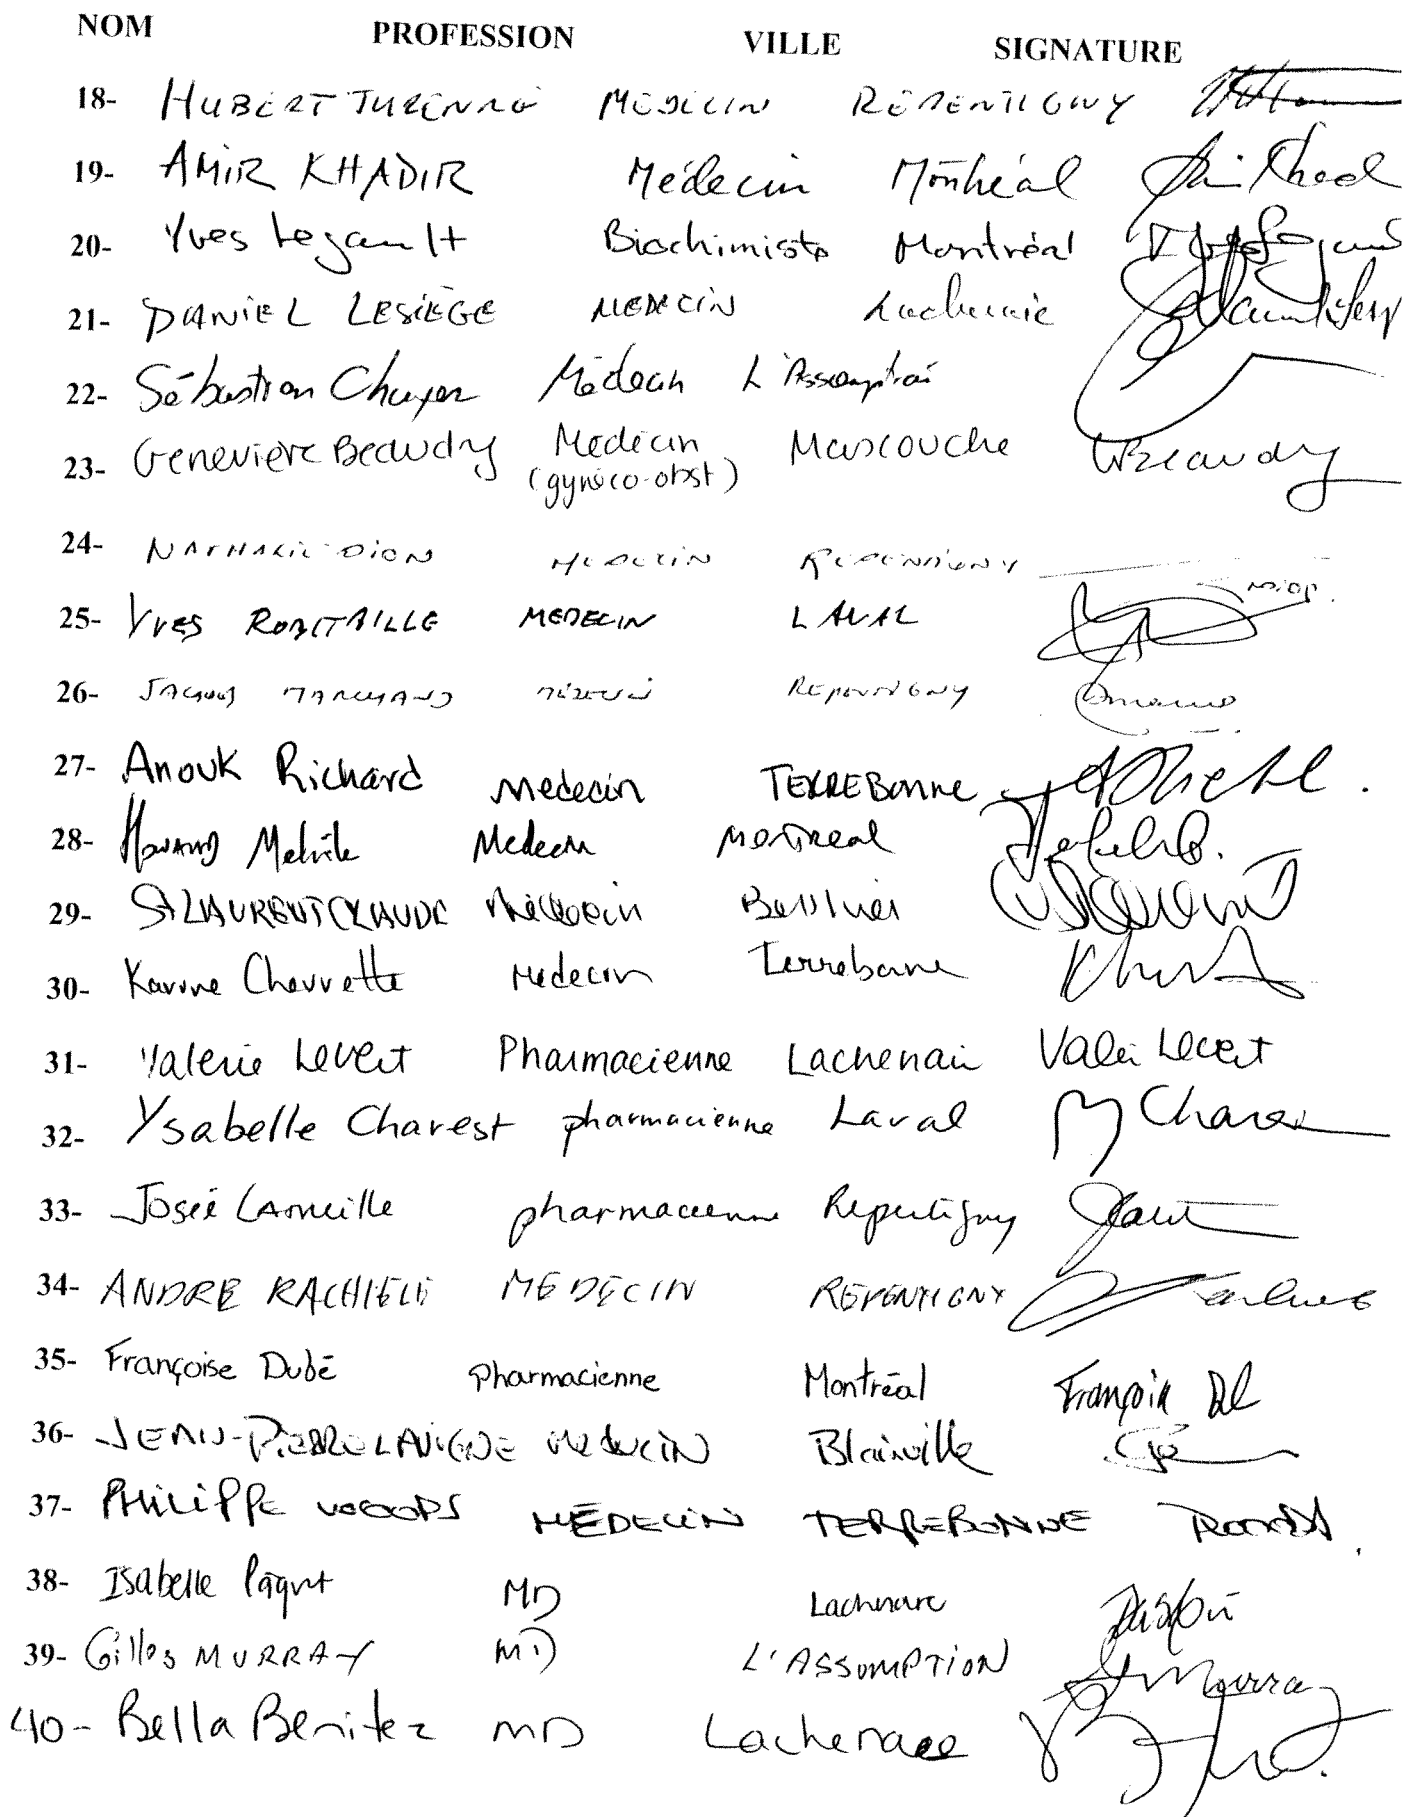 NOM PROFESSION VILLE SIGNATURE
18- HUBERT TURENNE MÉDECIN REPENTIGNY
19- AMIR KHADIR Médecin Montréal
20- Yves Legault Biochimiste Montréal
21- DANIEL LESIÈGE MEDECIN Lachenaie
22- Sébastien Médecin L'Assomption
23- Geneviève Beaudry Medecin Mascouche GBeaudry
(gynéco-obst)
24- NATHALIE DION MEDECIN REPENTIGNY
25- YVES ROBITAILLE MEDECIN LAVAL
26- JACQUES MARCHAND MÉDECIN REPENTIGNY
27- Anouk Richard Medecin TERREBONNE
28- Medecin MONTREAL
29- ST LAURENT CLAUDE Médecin
30- Karine Chevrette Medecin Terrebonne
31- Valerie Levert Pharmacienne Lachenaie Valéri Levert
32- Ysabelle Charest pharmacienne Laval
33- Josée pharmacienne Repentigny
34- ANDRE RACHIELE MEDECIN REPENTIGNY
35- Françoise Dubé Pharmacienne Montréal
36- JEAN-PIERRE LAVIGNE Medecin Blainville
37- PHILIPPE WOODS MÉDECIN TERREBONNE
38- Isabelle Paquet MD Lachenaie
39- Gilles MURRAY MD L'ASSOMPTION Murray
40- Bella Benitez MD Lachenaie